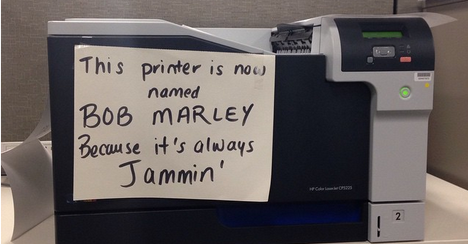 This printer is now
named
BOB MARLEY
Because it's always
Jammin'
HP Color LaserJet CP5225
2